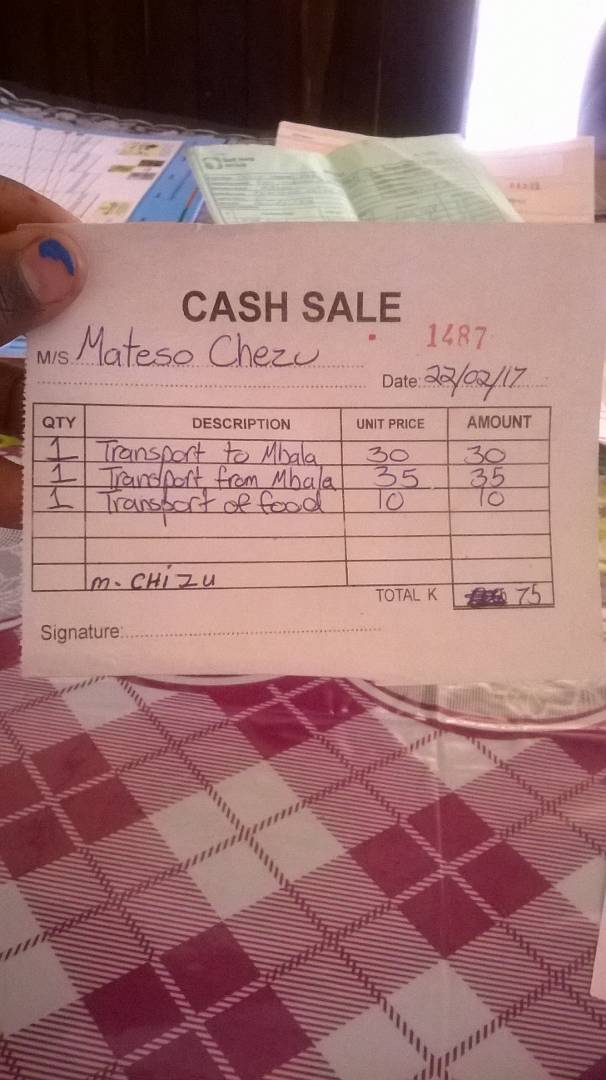 CASH SALE
1487
M/S Mateso Chezu
Date: 22/02/17
QTY DESCRIPTION UNIT PRICE AMOUNT
1 Transport to Mbala 30 30
1 Transport from Mbala 35 35
1 Transport of food 10 10
M. CHIZU
TOTAL K 75
Signature: